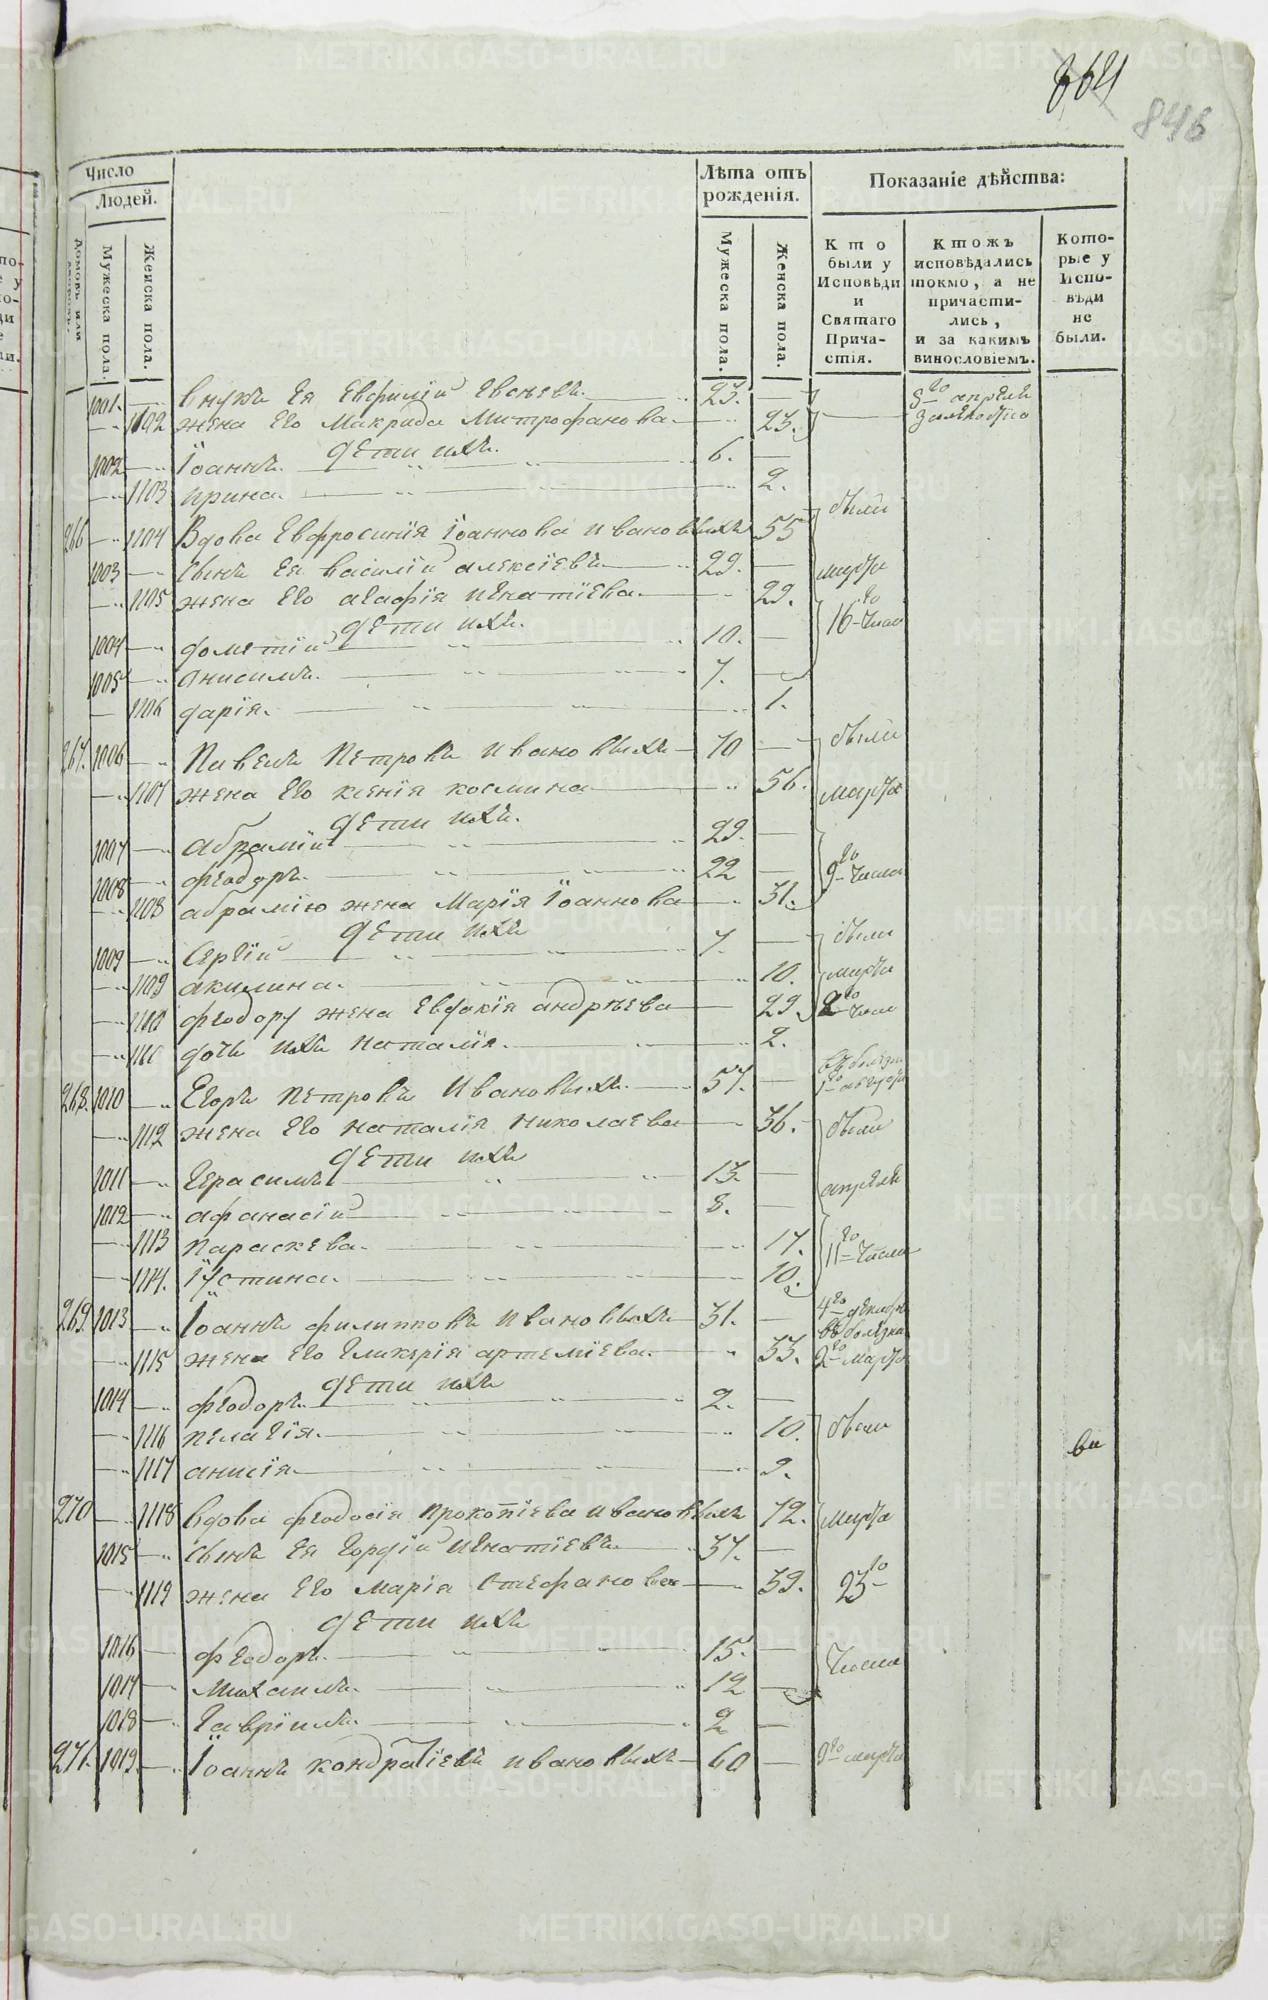 664
846
Число
Людей.
Домовъ или дворовъ.
Мужеска пола.
Женска пола.
Лѣта отъ рожденія.
Мужеска пола.
Женска пола.
Показаніе дѣйства:
Кто были у Исповѣди и Святаго Причастія.
Ктожъ исповѣдались токмо, а не причастились, и за какимъ винословіемъ.
Которые у Исповѣди не были.
1001. внукъ Ея Евфимій 23. апреля
жена Его Макрида Митрофанова 23.
дети ихъ
1002 Іоаннъ 6.
1103 ирина 2. были
266 1104 Вдова Евфросинія Іоаннова ивановыхъ 55
1003 Сынъ Ея василій алексіевъ 29. марта
1105 жена Его агафія игнатіева 29.
16го числа
дети ихъ
1004 дометій 10.
1005 анисимъ 7.
1106 дарія. 1.
267. 1006 Павелъ Петровъ ивановыхъ 70 были
1107 жена Его ксенія космина 56. марта
дети ихъ
1007 абрамій 29.
1008 феодоръ 22 9го числа
1108 абрамію жена Марія Іоаннова 31.
дети ихъ были
1009 Сергій 7.
1109 акилина. 10. марта
феодору жена Евдокія андрѣева 29.
дочь ихъ наталія. 2.
268. 1010 Егоръ петровъ Ивановыхъ 57.
1112 жена Его наталія николаева 36. были
дети ихъ
1011 Герасимъ 13. апреля
1012 афанасій 8.
1113 параскева 17. 11го числа
1114. Іустина. 10.
269. 1013 Іоаннъ филипповъ ивановыхъ 31. 4го декабря
въ болѣзни
1115 жена Его Гликерія артеміева 33. марта
дети ихъ
1014 феодоръ 2.
1116 пелагія. 10. были
1117 анисія 9.
270 1118 вдова феодосія прокопіева ивановыхъ 72. марта
1015 Сынъ Ея Гордій игнатіевъ 37.
1119 жена Его Марія Стефанова 39. 23го
дети ихъ
1016 феодоръ. 15. числа
1017 Михаилъ 12
1018 Гавріилъ 2
271. 1019 Іоаннъ кондратіевъ ивановыхъ 60 9го марта
METRIKI.GASO-URAL.RU